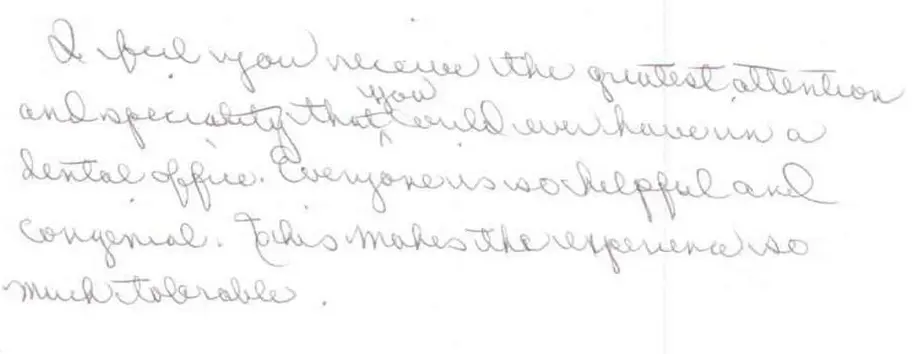 I feel you receive the greatest attention
and speciality that you could ever have in a
dental office. Everyone is so helpful and
congenial. This makes the experience so
much tolerable.